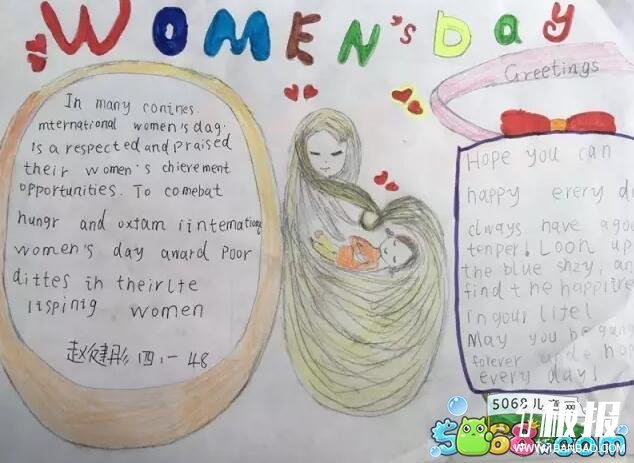 WOMEN'S DAY
In many conines.
international women's day.
Is a respected and praised
their women's chievement
opportunities. To comebat
hungr and oxtam iintemationg
women's day award poor
dittes in theirlte
Itspinig women
赵健彤 四.一 48
Greetings
Hope you can
happy every d
always have a goo
tenper! Loon up
the blue shzy, an
find the happitre
in your litel
May you be
forever hap
every day!
5068儿
板报
WWW.1BANBAO.COM
5068.com